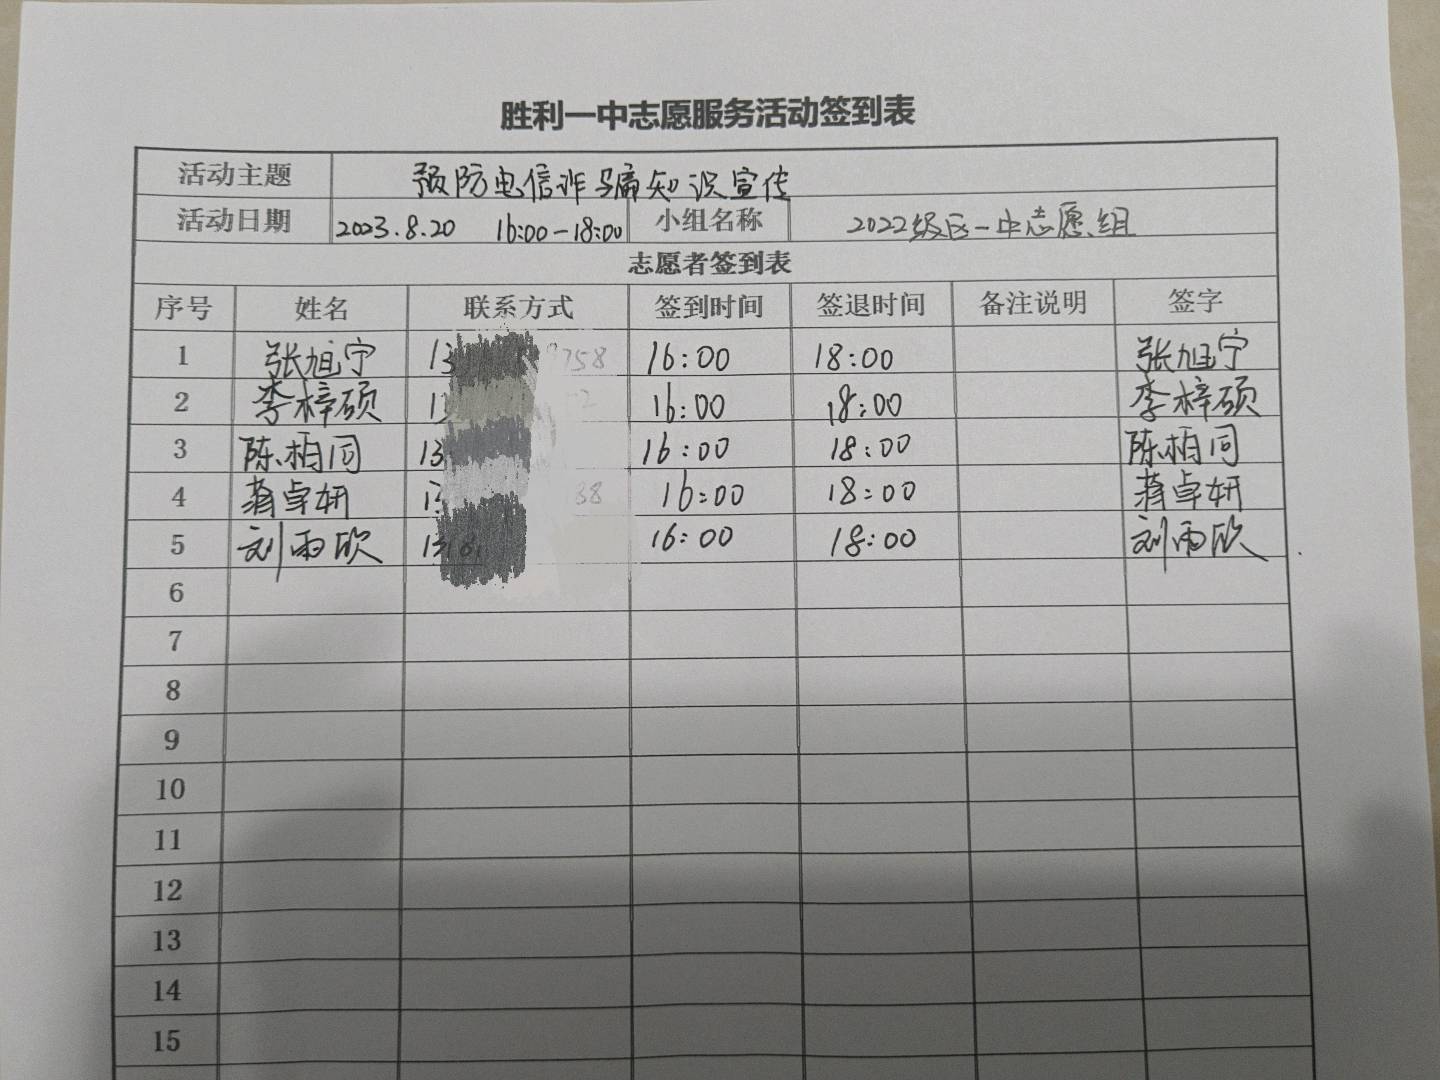 胜利一中志愿服务活动签到表
活动主题 预防电信诈骗知识宣传
活动日期 2023.8.20 16:00-18:00 小组名称 2022级区一中志愿组
志愿者签到表
序号 姓名 联系方式 签到时间 签退时间 备注说明 签字
1 张旭宁 16:00 18:00 张旭宁
2 李梓硕 16:00 18:00 李梓硕
3 陈柏同 16:00 18:00 陈柏同
4 蒋卓妍 16:00 18:00 蒋卓妍
5 刘雨欣 16:00 18:00 刘雨欣
6
7
8
9
10
11
12
13
14
15